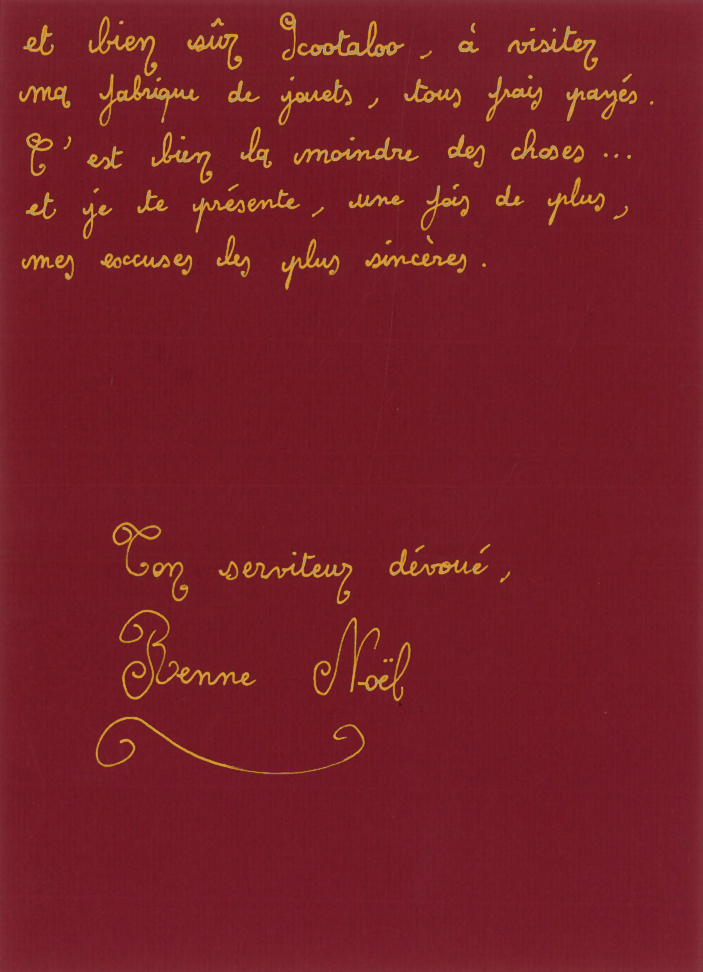 et bien sûr Scootaloo, à visiter
ma fabrique de jouets, tous frais payés.
C'est bien la moindre des choses...
et je te présente, une fois de plus,
mes excuses les plus sincères.
Ton serviteur dévoué,
Renne Noël